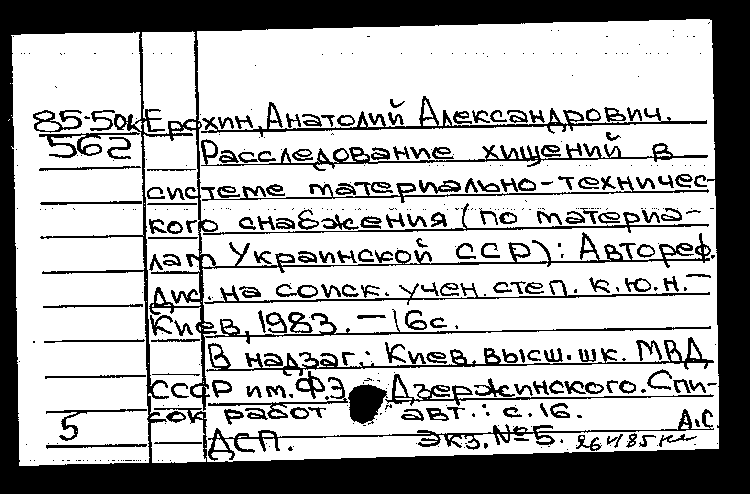 85-50к Ерохин, Анатолий Александрович.
562 Расследование хищений в
системе материально-техничес-
кого снабжения (по материа-
лам Украинской ССР): Автореф.
дис. на соиск. учен. степ. к.ю.н. –
Киев, 1983. – 16с.
В надзаг.: Киев. высш. шк. МВД
СССР им. Ф.Э Дзержинского. Спи-
сок работ авт.: с. 16.
5 А.С.
ДСП. Экз. №5.